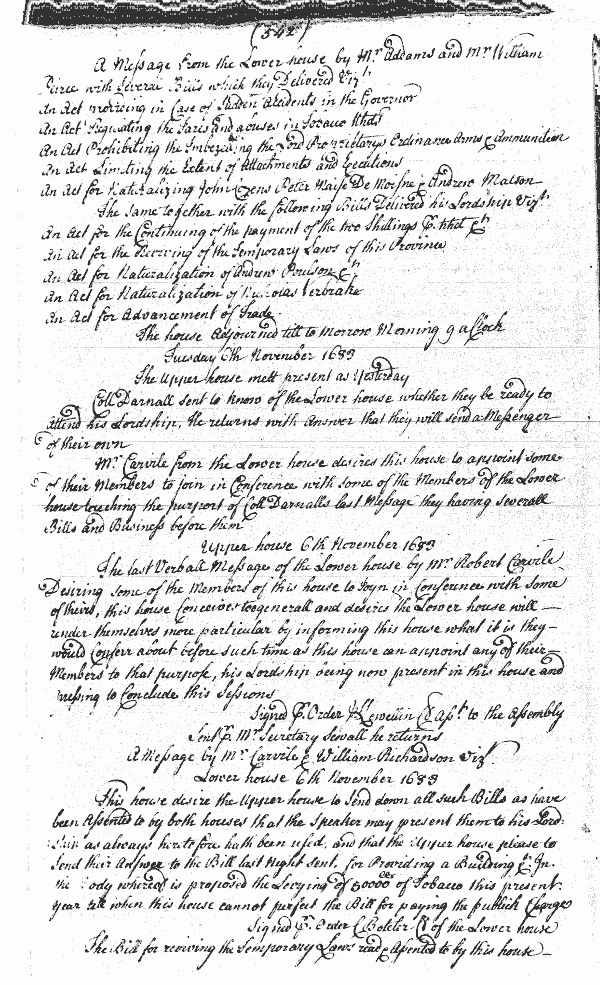 (542)
A Message from the Lower house by Mr. Addams and Mr. William
Peirce with severai Bills which they Delivered Vizt.
An Act providing in Case of Suden Accidents in the Governor
An Act Regulating the Tares and abuses in Tobacco Hhds
An Act Prohibiting the Imbezeling the Lord Proprietarys Ordinance Arms & Ammunition
An Act Limiting the Extent of Attachments and Executions
An Act for Naturalizing John Cozens Peter De & Andrew Matson
The same together with the following Bills Delivered his Lordship Vizt.
An Act for the Continuing of the payment of the two Shillings P. Hhd &c
An Act for the Reviving of the Temporary Laws of this Province
An Act for Naturalization of Andrew Poulson &c
An Act for Naturalization of Nicholas Verbrake
An Act for Advancement of Trade.
The house Adjourned till to Morrow Morning 9 a Clock
Tuesday 6th November 1683
The Upper house mett present as Yesterday
Coll Darnall sent to know of the Lower house whether they be ready to
attend his Lordship, He returns with Answer that they will send a Messenger
of their own
Mr. Carvile from the Lower house desires this house to appoint some
of their Members to join in Conference with some of the Members of the Lower
house touching the purport of Coll Darnalls last Message they having severall
Bills and Business before them
Upper house 6th November 1683
The last Verball Message of the Lower house by Mr. Robert Carvile
Desiring some of the Members of this house to Joyn in Conference with some
of theirs, this house Conceives too generall and desires the Lower house will
render themselves more particular by informing this house what it is they
would Conferr about before such time as this house can appoint any of their
Members to that purpose, his Lordship being now present in this house and
pressing to Conclude this Sessions
Signed P. Order Llewellin Cl Asst. to the Assembly
Sent P. Mr. Secretary Sewall he returns
A Message by Mr. Carvile & William Richardson Vizt.
Lower house 6th November 1683
This house desire the Upper house to Send down all such Bills as have
been Assented to by both houses that the Speaker may present them to his Lord:
Ship as always heretofore hath been used, and that the Upper house please to
Send their Answer to the Bill last Night sent, for Providing a Building &c. In
the Body whereof is proposed the Levying of of Tobacco this present
year till when this house cannot perfect the Bill for paying the publick Charge
Signed P. Order Cl of the Lower house
The Bill for reviving the Temporary Laws read & Assented to by this house